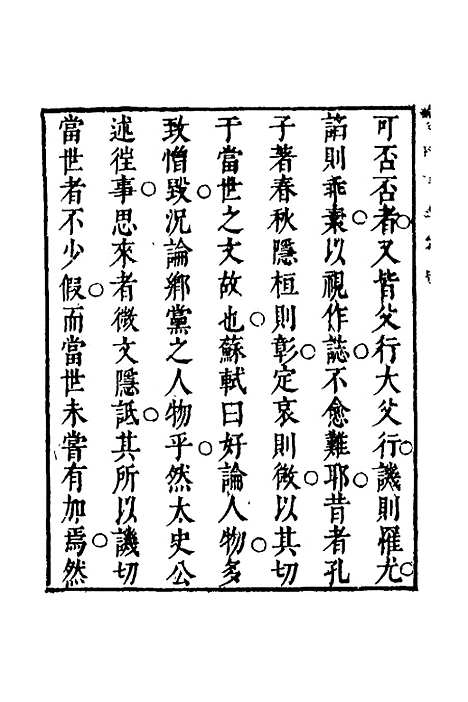 可否否者又皆父行大父行譏則罹尤
諂則乖素以視作誌不愈難耶昔者孔
子著春秋隱桓則彰定哀則微以其切
于當世之文故也蘇軾曰好論人物多
致憎毀況論鄉黨之人物乎然太史公
述徃事思來者微文隱詆其所以譏切
當世者不少假而當世未嘗有加焉然